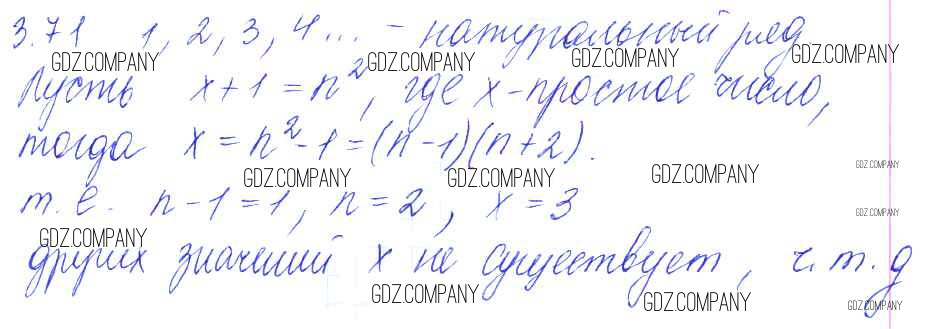 3.71 1, 2, 3, 4... - натуральный ряд
GDZ.COMPANY GDZ.COMPANY GDZ.COMPANY GDZ.COMPANY
Пусть x+1=n², где x-простое число,
тогда x=n²-1=(n-1)(n+2).
GDZ.COMPANY
GDZ.COMPANY GDZ.COMPANY GDZ.COMPANY
т.е. n-1=1, n=2, x=3
GDZ.COMPANY
GDZ.COMPANY
других значений x не существует, ч.т.д
GDZ.COMPANY GDZ.COMPANY GDZ.COMPANY